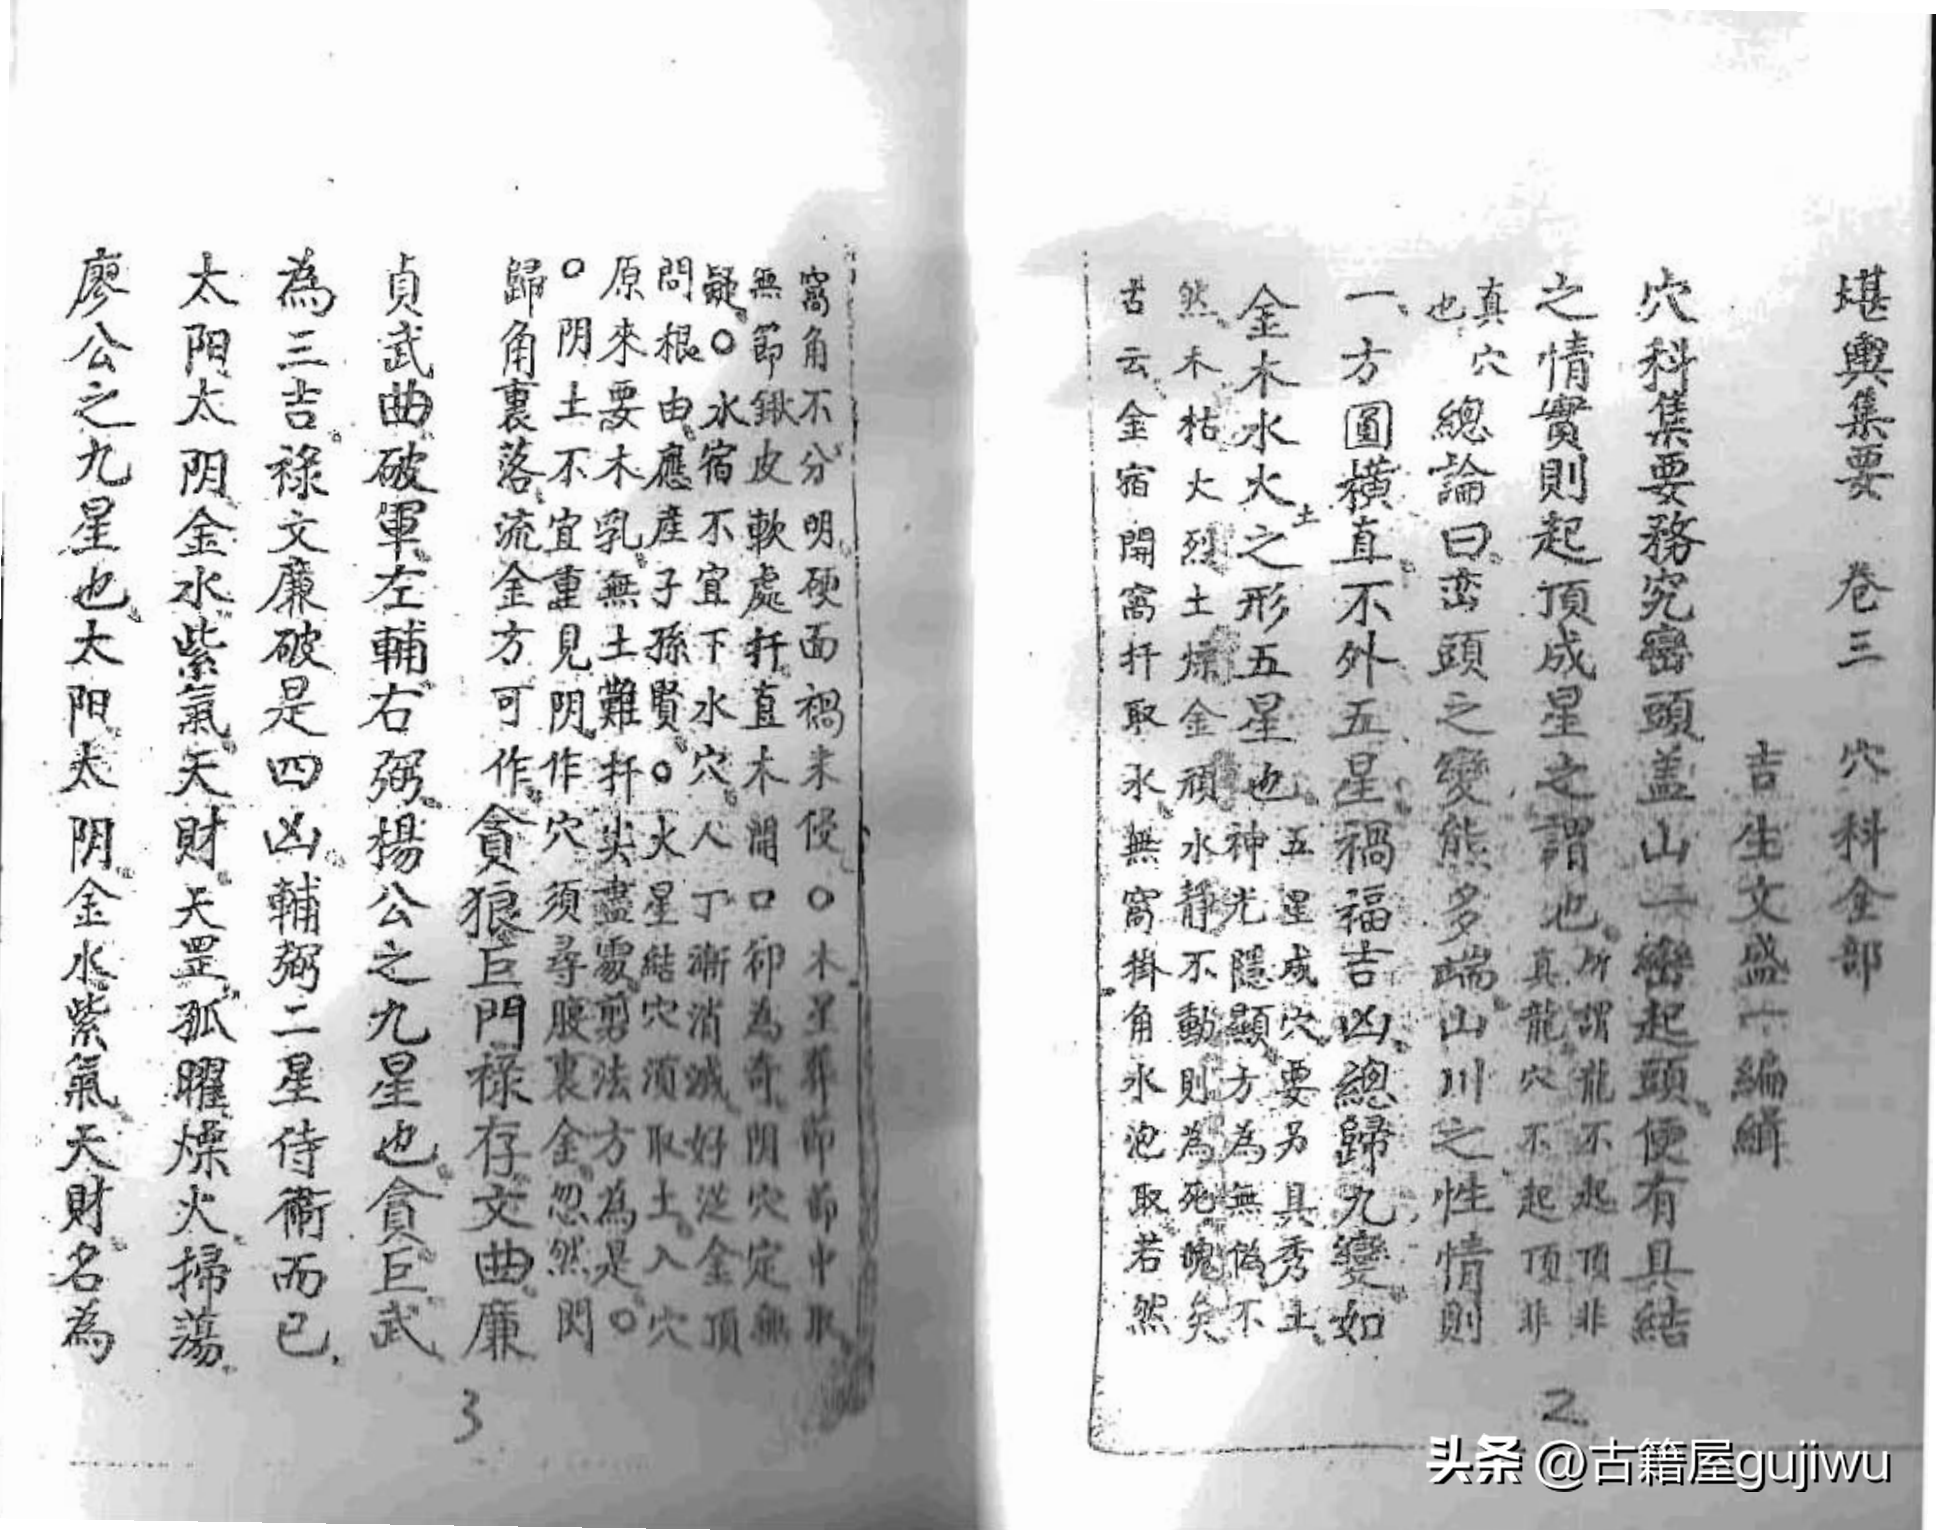 堪輿集要 卷三 穴科全部
吉生文盛六編緝
穴科集要務究巒頭盖山一巒起頭便有具結
之情實則起頂成星之謂也
所謂龍不起頂非
真龍穴不起頂非
真穴
也
總論曰峦頭之變態多端山川之性情則
一方圓橫直不外五星禍福吉凶總歸九變如
金木水火土之形五星也
五星成穴要另具秀土
神光隱顯方為無偽不
然木枯火烈土燥金頑水靜不動則為死魄矣
古云金宿開窩扦取水無窩掛角水泡取若然
窩角不分明硬面禍来侵〇木星葬節節中取
無節鍬皮軟處扦直木開口卻為奇閃穴定無
疑〇水宿不宜下水穴人丁漸消滅好泛金頂
問根由應產子孫賢〇火星結穴須取土入穴
原來要木乳無土難扦尖盡處剪法方為是〇
〇阴土不宜重見阴作穴須尋腹裏金忽然閃
歸角裏落流金方可作
貪狼巨門祿存文曲廉
貞武曲破軍左輔右弼楊公之九星也貪巨武
為三吉祿文廉破是四凶輔弼二星侍衞而已
太阳太阴金水紫氣天財天罡孤曜燥火掃蕩
廖公之九星也太阳太阴金水紫氣天財名為
2
3
头条 @古籍屋gujiwu